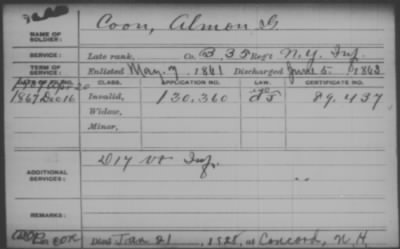 NAME OF SOLDIER: Coon, Almon G
SERVICE: Late rank, Co. B, 35 Reg't N.Y. Inf.
TERM OF SERVICE: Enlisted May 7, 1861 Discharged June 5, 1863
DATE OF FILING. CLASS. APPLICATION NO. LAW. CERTIFICATE NO.
1867 Dec 16 Invalid, 130,360 89,437
Widow,
Minor,
ADDITIONAL SERVICES: D 17 Vt Inf.
REMARKS:
Died Jan 21, 1928, at Concord, N.H.